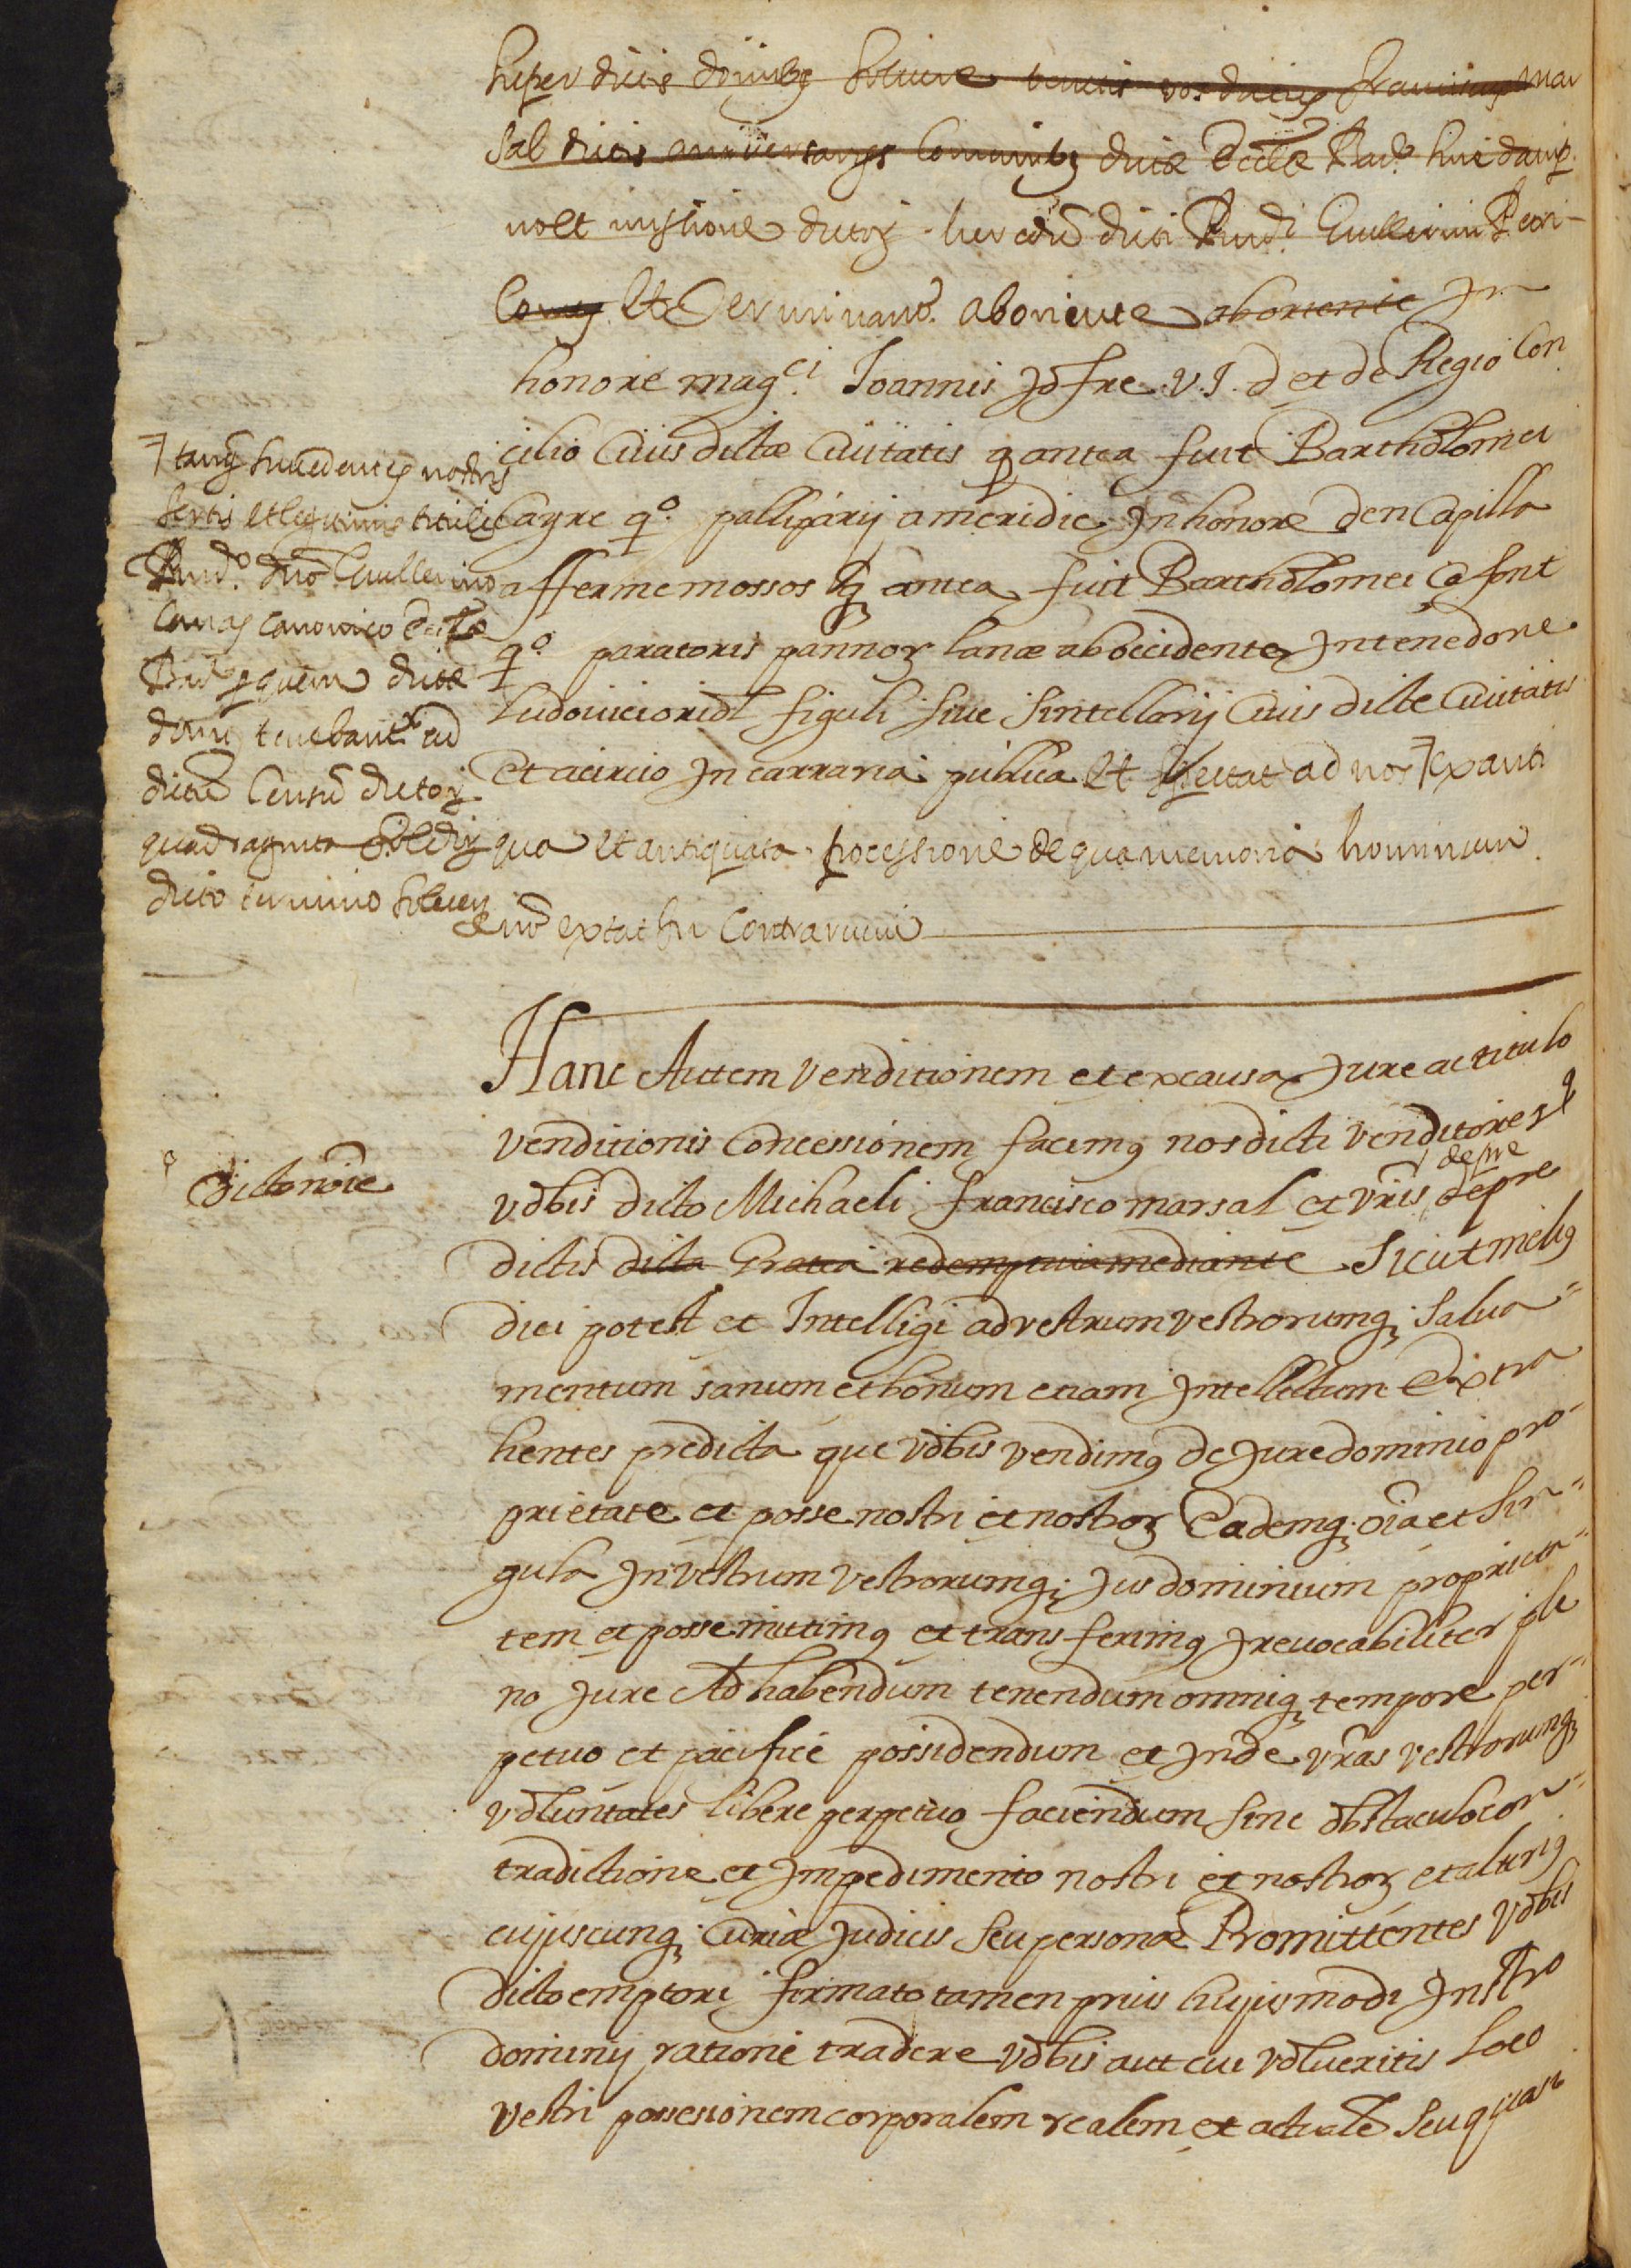 super dictis domibus solvere tenetis vos dictus Franciscus Mar
sal dictis anniversarijs Communibus dictæ Ecclæ
dictorum heredũ dicti Rndi Guillermi
Comas Et Terminant. ab oriente ab oriente In
honore magci Joannis Jofre V. J. d et de Regio Con
cilio Civis dictæ Civitatis q antea fuit Bartholomei
Cayre qo. palliparij a meridie In honore den Capilla
affermemossos q antea fuit Bartholomei Ca font
qo paratoris pannorz lanæ ab occidente In tenedone
Ludovici oridl figuli sive sintellarij Civis dicte Civitatis
Et a circio In carraria publica Et spectat ad nos ex anti
qua Et antiquata possessione de qua memoria hominum
in contrarium
tanq succedentes nostris
certis et legitimis titulis
Rndo. dno Guillermo
Comas canonico Ecclæ
quem dictæ
domus tenebantr ad
dictũ Censũ dictorz
quadraginta solidorz
dicto termino solven
Hanc Autem venditionem et ex causa Jure ac titulo
venditionis Concessionem facimus nos dicti venditores
dicto noīe
vobis dicto Michaeli francisco marsal et vr̃is de pre
de pre
dictis dicta Gratia redemptiva mediante Sicut melius
dici potest et Intelligi ad vestrum vestrorumq; salva=
mentum sanum et bonum etiam Intellectum Extra
hentes predicta que vobis vendimus de Jure dominio pro=
prietate et posse nostri et nostrorz Eademq; oia et sin=
gula In vestrum vestrorumq; Jus dominium proprieta=
tem et posse mittimus et transferimus Irrevocabiliter ple
no Jure Ad habendum tenendum omniq; tempore per=
petuo et pacifice possidendum et Inde vr̃as vestrorumq;
voluntates libere perpetuo faciendum sine obstaculo con=
tradictione et Impedimento nostri et nostrorz et alterius
cujuscunq; Curiæ Judicis seu personæ Promittentes vobis
dicto emptori firmato tamen prius hujusmodi Instro
dominij ratione tradere vobis aut cui volueritis loco
vestri possesionem corporalem realem et actualẽ seu quasi